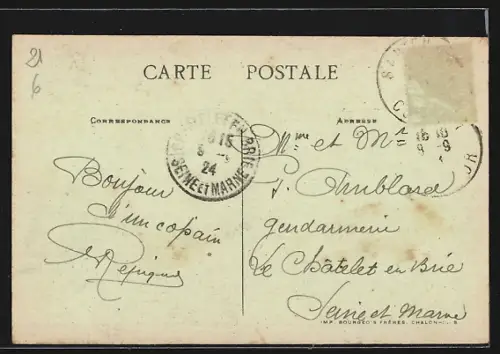 21
6
CARTE POSTALE
CORRESPONDANCE
ADRESSE
EN BRIE
SEINE ET MARNE
24
Bonjour
d'un copain
Mme et Mr
gendarmerie
Le Châtelet en Brie
Seine et Marne
IMP. BOURGEOIS FRÈRES, CHALON-S-S